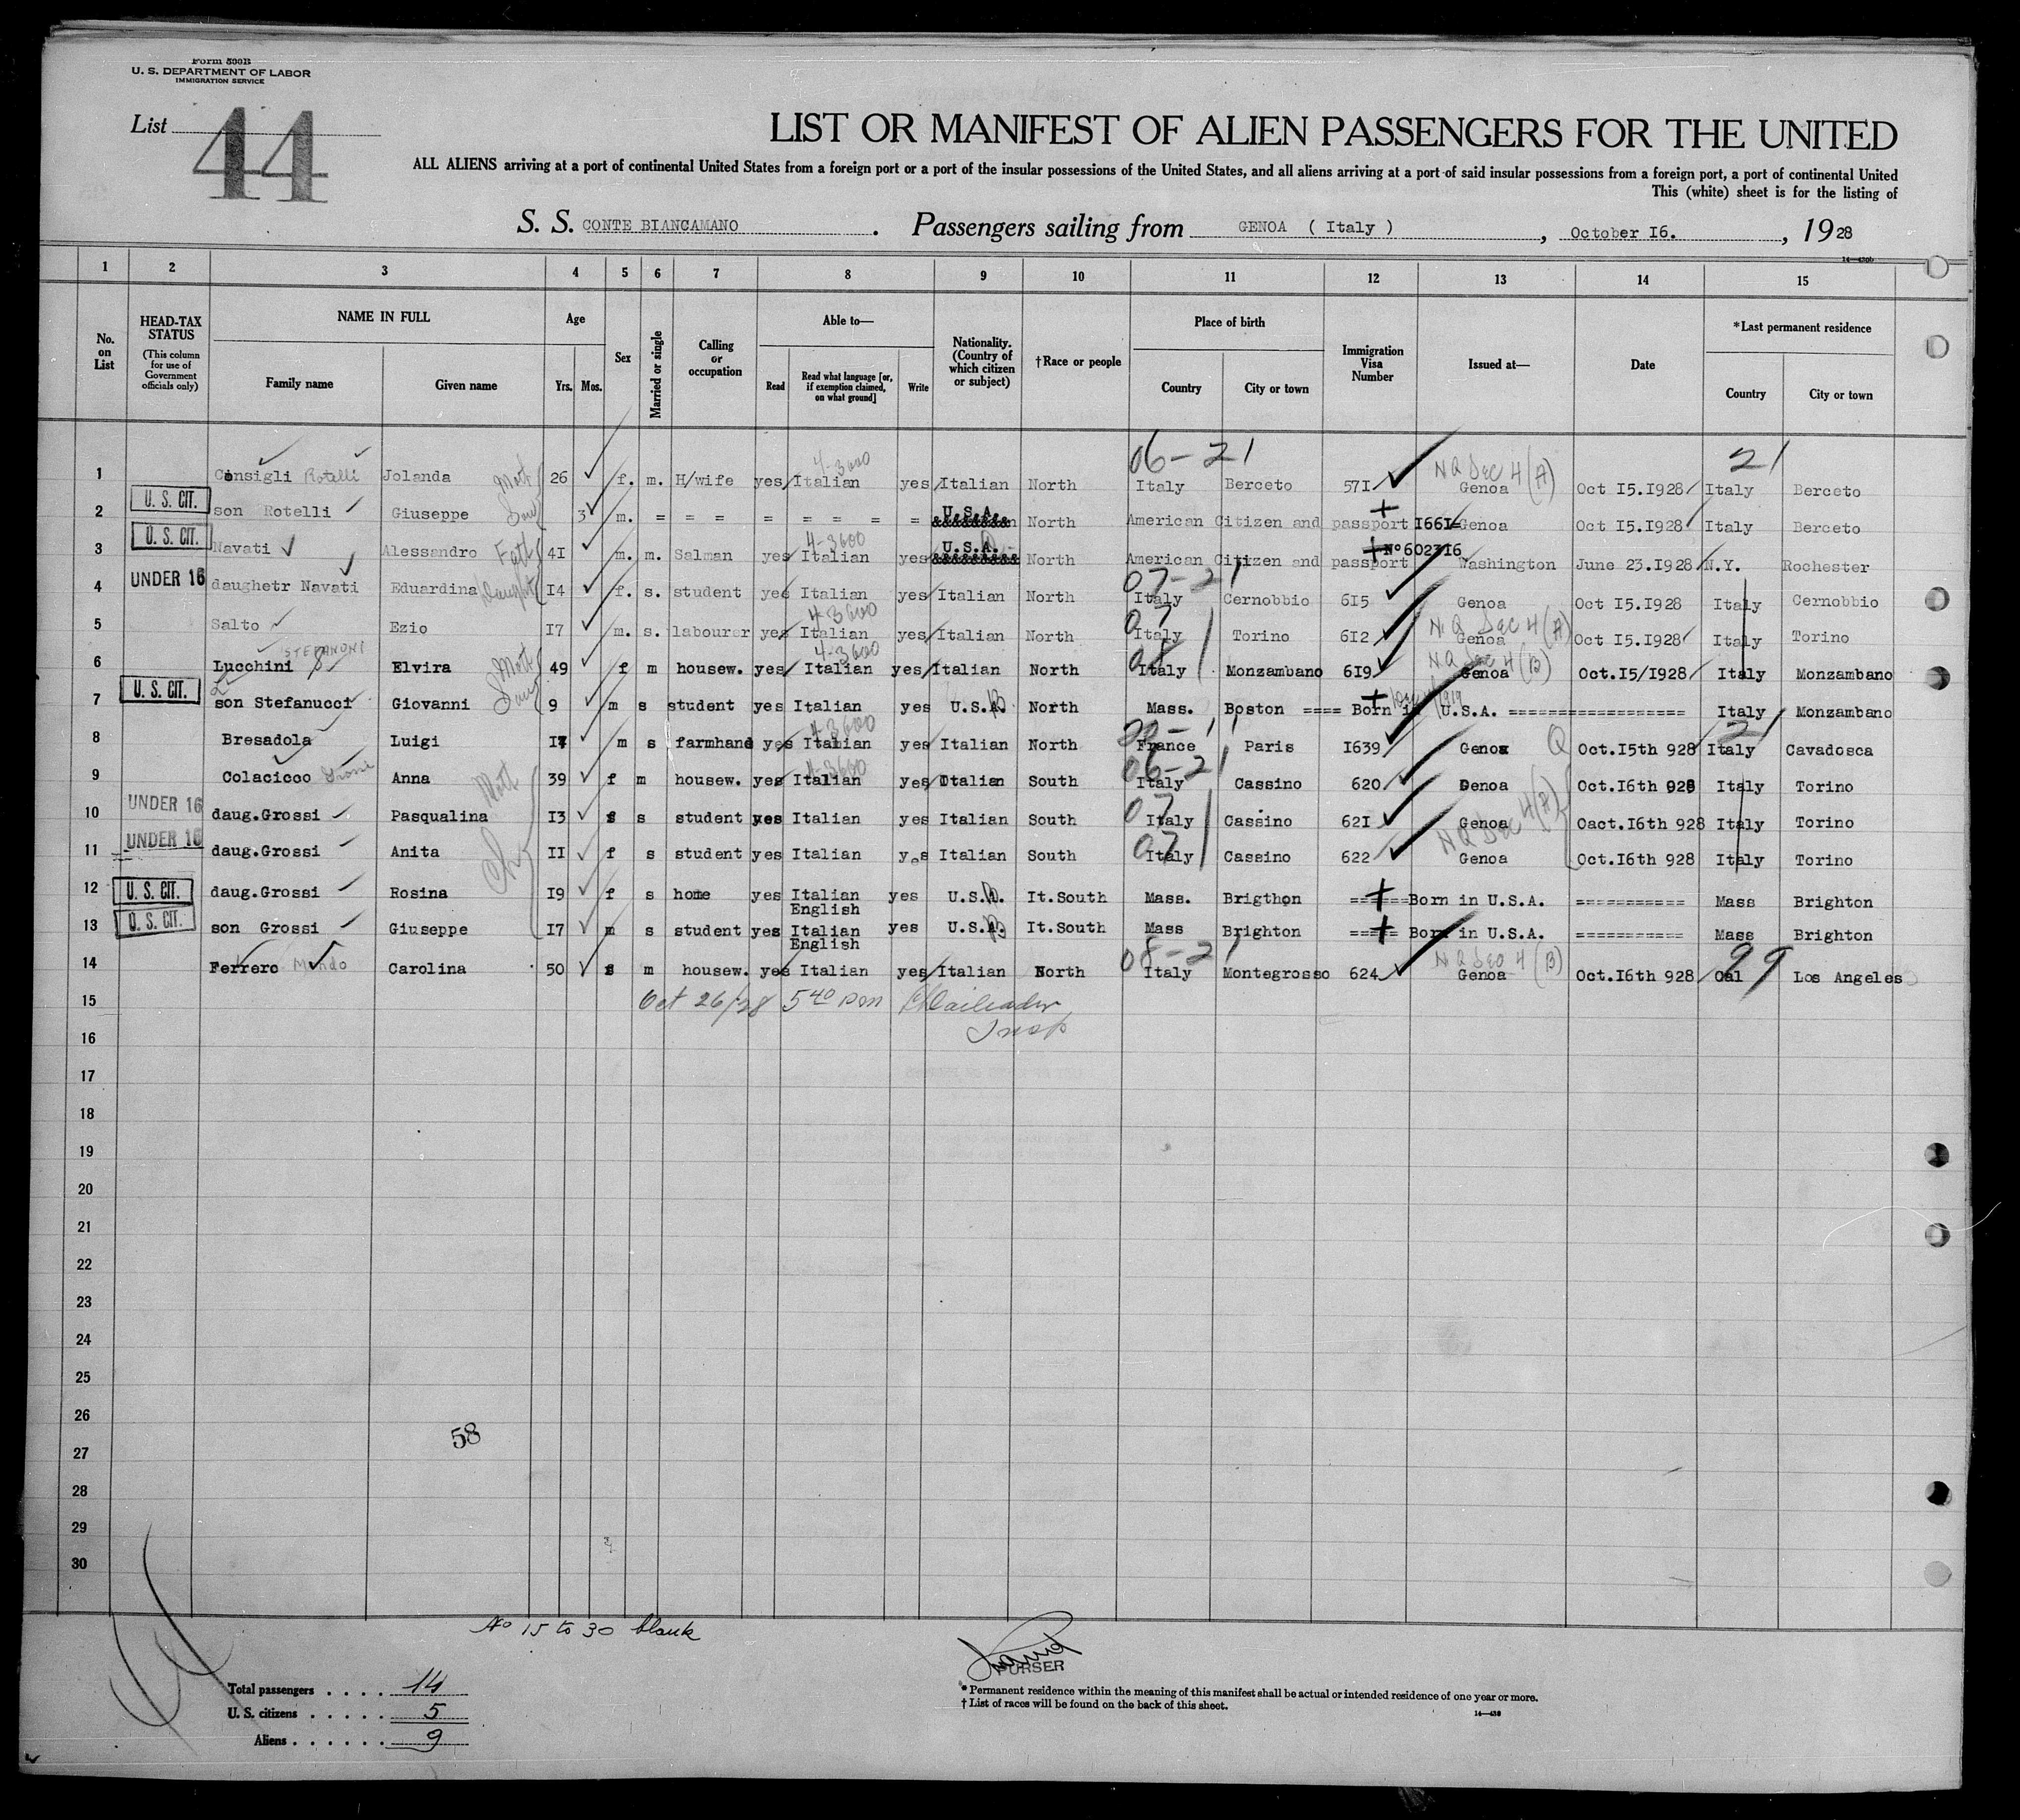 Form 500B
U. S. DEPARTMENT OF LABOR
IMMIGRATION SERVICE
List 44
LIST OR MANIFEST OF ALIEN PASSENGERS FOR THE UNITED
ALL ALIENS arriving at a port of continental United States from a foreign port or a port of the insular possessions of the United States, and all aliens arriving at a port of said insular possessions from a foreign port, a port of continental United
This (white) sheet is for the listing of
S. S. CONTE BIANCAMANO. Passengers sailing from GENOA ( Italy ), October I6., 1928
14—430b
1 2 3 4 5 6 7 8 9 10 11 12 13 14 15
No. on List
HEAD-TAX STATUS (This column for use of Government officials only)
NAME IN FULL
Family name Given name
Age
Yrs. Mos.
Sex
Married or single
Calling or occupation
Able to—
Read Read what language [or, if exemption claimed, on what ground] Write
Nationality. (Country of which citizen or subject)
†Race or people
Place of birth
Country City or town
Immigration Visa Number
Issued at—
Date
*Last permanent residence
Country City or town
4-3600 06-21 NQ Dec 4 (A) 21
1 Consigli Rotelli Jolanda 26 f. m. H/wife yes Italian yes Italian North Italy Berceto 57I Genoa Oct I5.I928 Italy Berceto
2 U. S. CIT. son Rotelli Giuseppe 3 m. = = = = = = = = U.S.A. North American Citizen and passport I66I= Genoa Oct I5.I928 Italy Berceto
4-3600
3 U. S. CIT. Navati Alessandro Fath 4I m. m. Salman yes Italian yes U.S.A. North American Citizen and passport No 602316 Washington June 23.I928 N.Y. Rochester
07-21
4 UNDER 16 daughetr Navati Eduardina I4 f. s. student yes Italian yes Italian North Italy Cernobbio 6I5 Genoa Oct I5.I928 Italy Cernobbio
4-3600 07 NQ Dec 4 (A)
5 Salto Ezio I7 m. s. labourer yes Italian yes Italian North Italy Torino 6I2 Genoa Oct I5.I928 Italy Torino
STEFANONI 4-3600 NQ Dec 4 (B)
6 Lucchini Elvira Moth 49 f m housew. yes Italian yes Italian North Italy Monzambano 6I9 Genoa Oct.I5/I928 Italy Monzambano
7 U. S. CIT. son Stefanucci Giovanni 9 m s student yes Italian yes U.S.A. North Mass. Boston ==== Born in U.S.A. ================== Italy Monzambano
4-3600
8 Bresadola Luigi I7 m s farmhand yes Italian yes Italian North France Paris I639 Genoa Q Oct.I5th 928 Italy Cavadosca
4-3600 06-21
9 Colacicco Grossi Anna Moth 39 f m housew. yes Italian yes Italian South Italy Cassino 620 Genoa Oct.I6th 928 Italy Torino
07
10 UNDER 16 daug.Grossi Pasqualina I3 f s student yes Italian yes Italian South Italy Cassino 62I Genoa NQ Dec 4 (A) Oact.I6th 928 Italy Torino
07
11 UNDER 16 daug.Grossi Anita II f s student yes Italian yes Italian South Italy Cassino 622 Genoa Oct.I6th 928 Italy Torino
12 U. S. CIT. daug.Grossi Rosina I9 f s home yes Italian English yes U.S.A. It.South Mass. Brigthon ====== Born in U.S.A. =========== Mass Brighton
13 U. S. CIT. son Grossi Giuseppe I7 m s student yes Italian English yes U.S.A. It.South Mass Brighton ===== Born in U.S.A. =========== Mass Brighton
08-21 NQ Dec 4 (B) 99
14 Ferrero Mondo Carolina 50 f m housew. yes Italian yes Italian North Italy Montegrosso 624 Genoa Oct.I6th 928 Cal Los Angeles
15 Oct 26/28 5 40 pm
16 Insp
17
18
19
20
21
22
23
24
25
26
58
27
28
29
30
No 15 to 30 blank
PURSER
Total passengers . . . . 14
U. S. citizens . . . . . 5
Aliens . . . . . . 9
* Permanent residence within the meaning of this manifest shall be actual or intended residence of one year or more.
† List of races will be found on the back of this sheet.
14—430